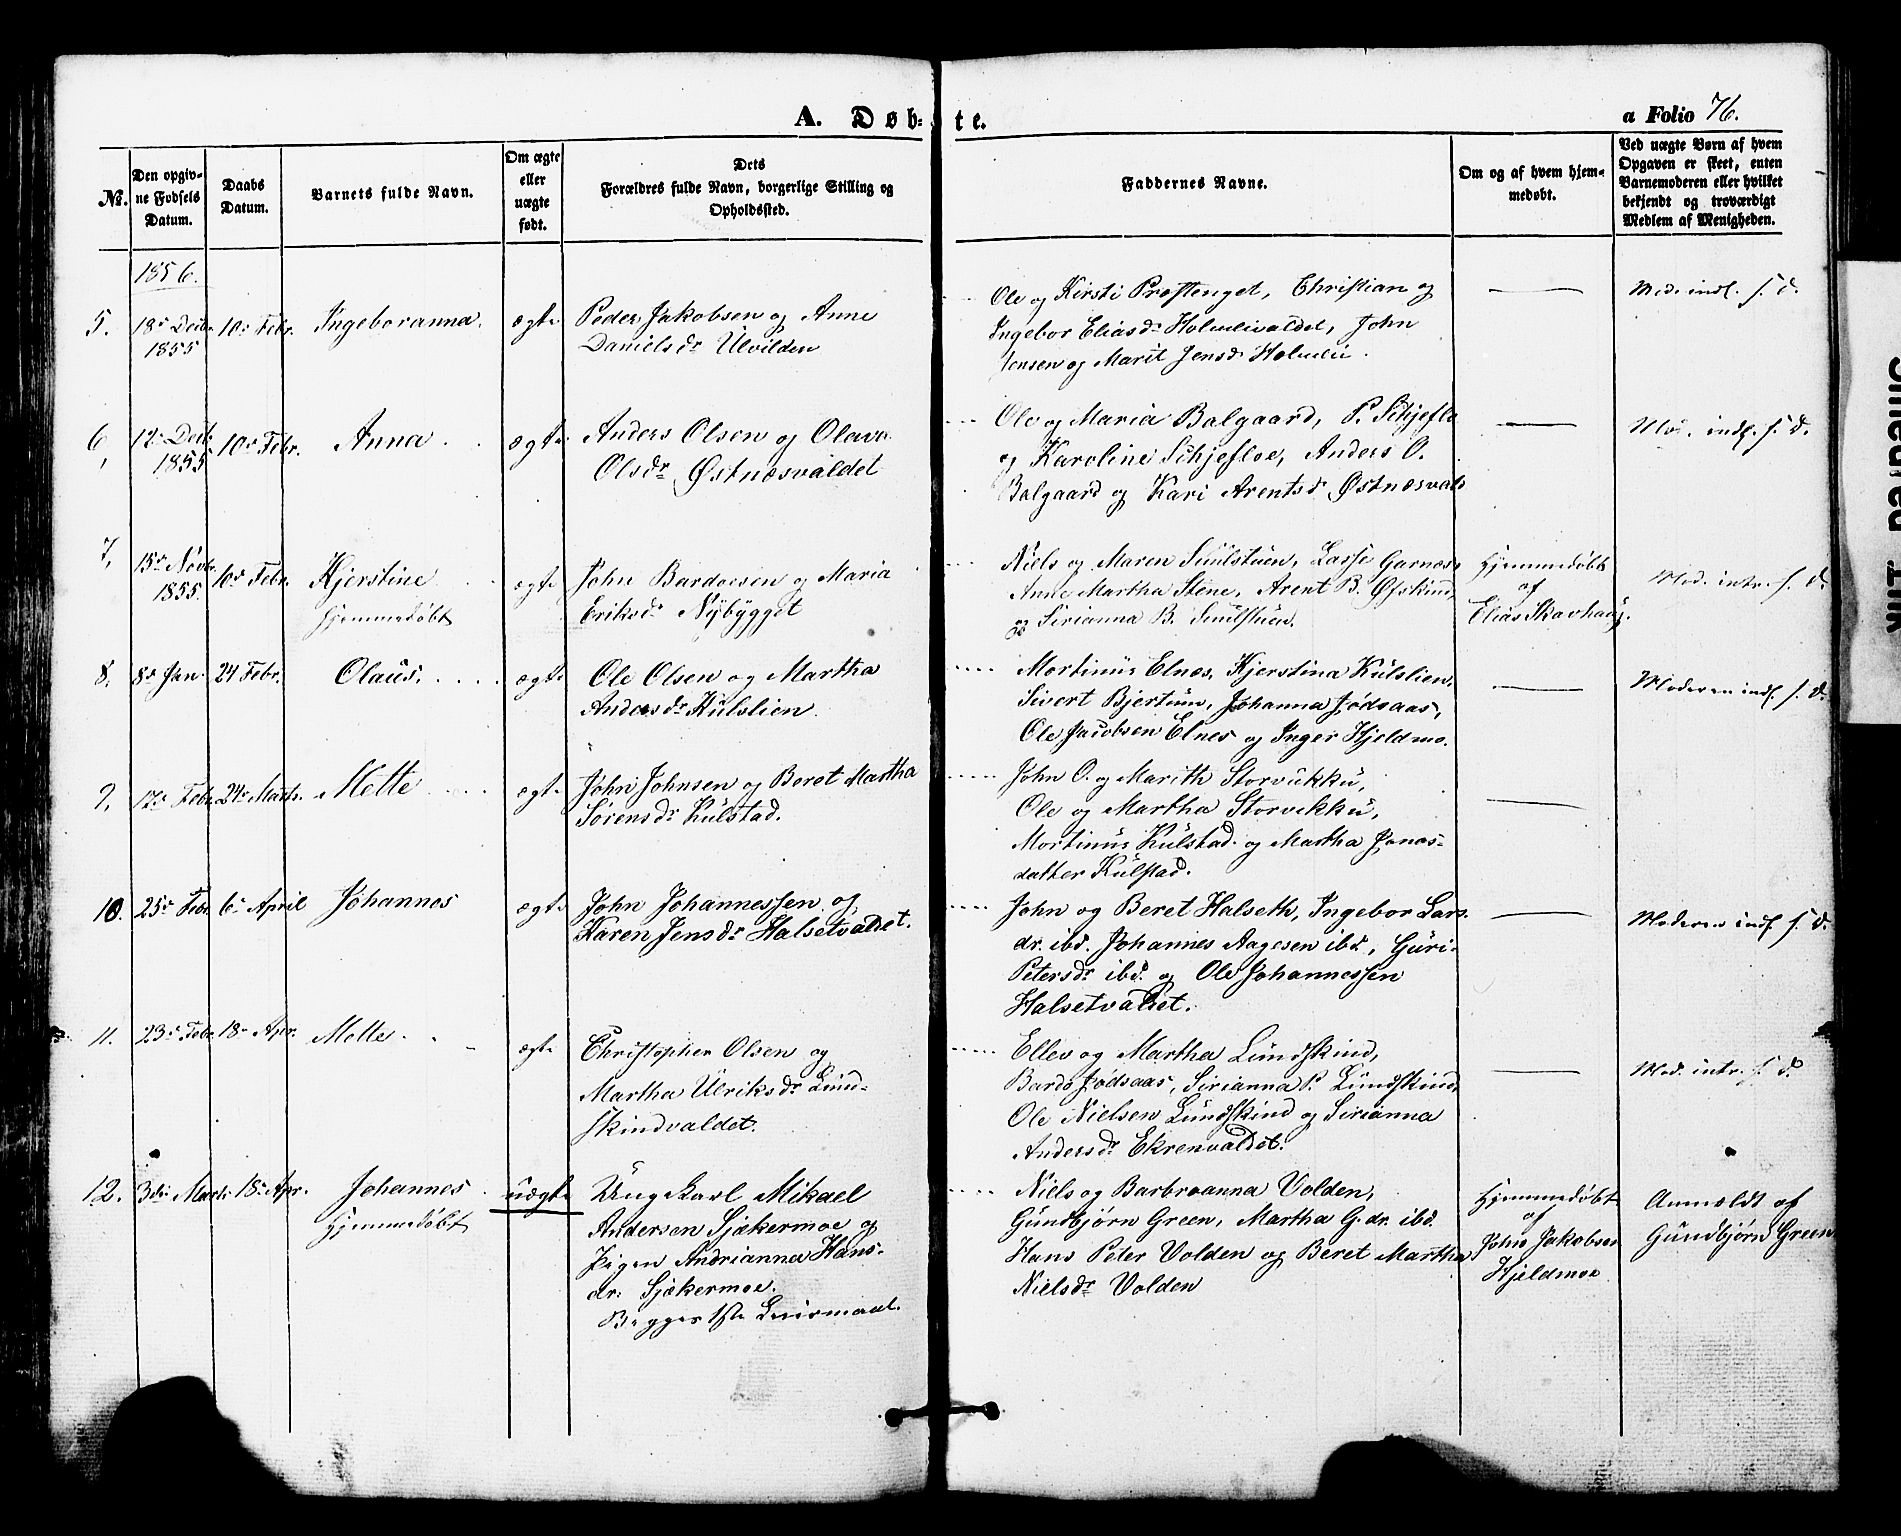 A. Døb-
te.
a Folio 76.
No.
Den opgiv-
ne Fødsels
Datum.
Daabs
Datum.
Barnets fulde Navn.
Om ægte
eller
uægte
født.
Dets
Forældres fulde Navn, borgerlige Stilling og
Opholdssted.
Faddernes Navne.
Om og af hvem hjem-
medøbt.
Ved uægte Børn af hvem
Opgaven er skeet, enten
Barnemoderen eller hvilket
bekjendt og troværdigt
Medlem af Menigheden.
1856.
5.
18de Decbr.
1855
10de Febr.
Ingeboranna.
ægte
Peder Jakobsen og Anne
Danielsdr Ulvilden
Ole og Kirsti Præstenget, Christian og
Ingebor Eliasdr Holmlivaldet, John
Jensen og Marit Jensdr Holmlii.
Mod. indl. s. d.
6,
12te Decbr.
1855
10de Febr.
Anna
ægte
Anders Olsen og Olava
Olsdr Østnæsvaldet
Ole og Maria Balgaard, P. Schjeflo
og Karoline Schjefloe, Anders O.
Balgaard og Kari Arentsdr Østnæsvald
Mod. indl. s. d.
7,
15de Novbr.
1855.
10de Febr.
Kjerstine
Hjemmedøbt
ægte
John Bardoesen og Maria
Eriksdr Nybygget
Niels og Maren Smilstuen, Lasse Garnæs,
Anne Martha Stene, Arent B. Øfskind,
og Sirianna B. Smilstuen.
Hjemmedøbt
af
Elias Skavhaug.
Mod. intr. s. d.
8.
8de Jan.
24 Febr.
Olaus.
ægte
Ole Olsen og Martha
Andersdr Kulslien.
Mortinus Elnes, Kjerstina Kulslien,
Sivert Bjertum, Johanna Jødsaas,
Ole Jacobsen Elnes og Inger Hjeldmo.
Moderen indl. s. d.
9,
17de Febr.
24de Marts.
Mette
ægte
John Johnsen og Beret Martha
Sørensdr Kulstad.
John O. og Marith Storvukku,
Ole og Martha Storvukku,
Mortinus Kulstad og Martha Jonas-
datter Kulstad.
10.
25de Febr.
6te April
Johannes
ægte
John Johannessen og
Karen Jensdr Halsetvaldet.
John og Beret Halseth, Ingebor Lars-
dr. ibd. Johannes Aagesen ibd., Guri
Petersdr ibd. og Ole Johannessen
Halsetvaldet.
Moderen indl. s. d.
11.
23de Febr.
18de Apr.
Mette
ægte
Christopher Olsen og
Martha Ulriksdr Lund-
skindvaldet.
Ellev og Martha Lundskind,
Bardo Jødsaas, Sirianna P. Lundskind,
Ole Nielsen Lundskind og Sirianna
Andersdr Ekrenvaldet.
Mod. intr. s. d.
12.
3die Marts
18de Apr.
Johannes
Hjemmedøbt
uægte
Ungkarl Mikael
Andersen Sjækermoe og
Pigen Andrianna Hans-
dr. Sjækermoe.
Begges 1ste Leiermaal.
Niels og Barbroanna Volden,
Gundbjørn Green, Martha G.dr. ibd.
Hans Peter Volden og Beret Martha
Nielsdr Volden
Hjemmedøbt
af
John Jakobsen
Hjeldmoe
Anmeldt af
Gundbjørn Green